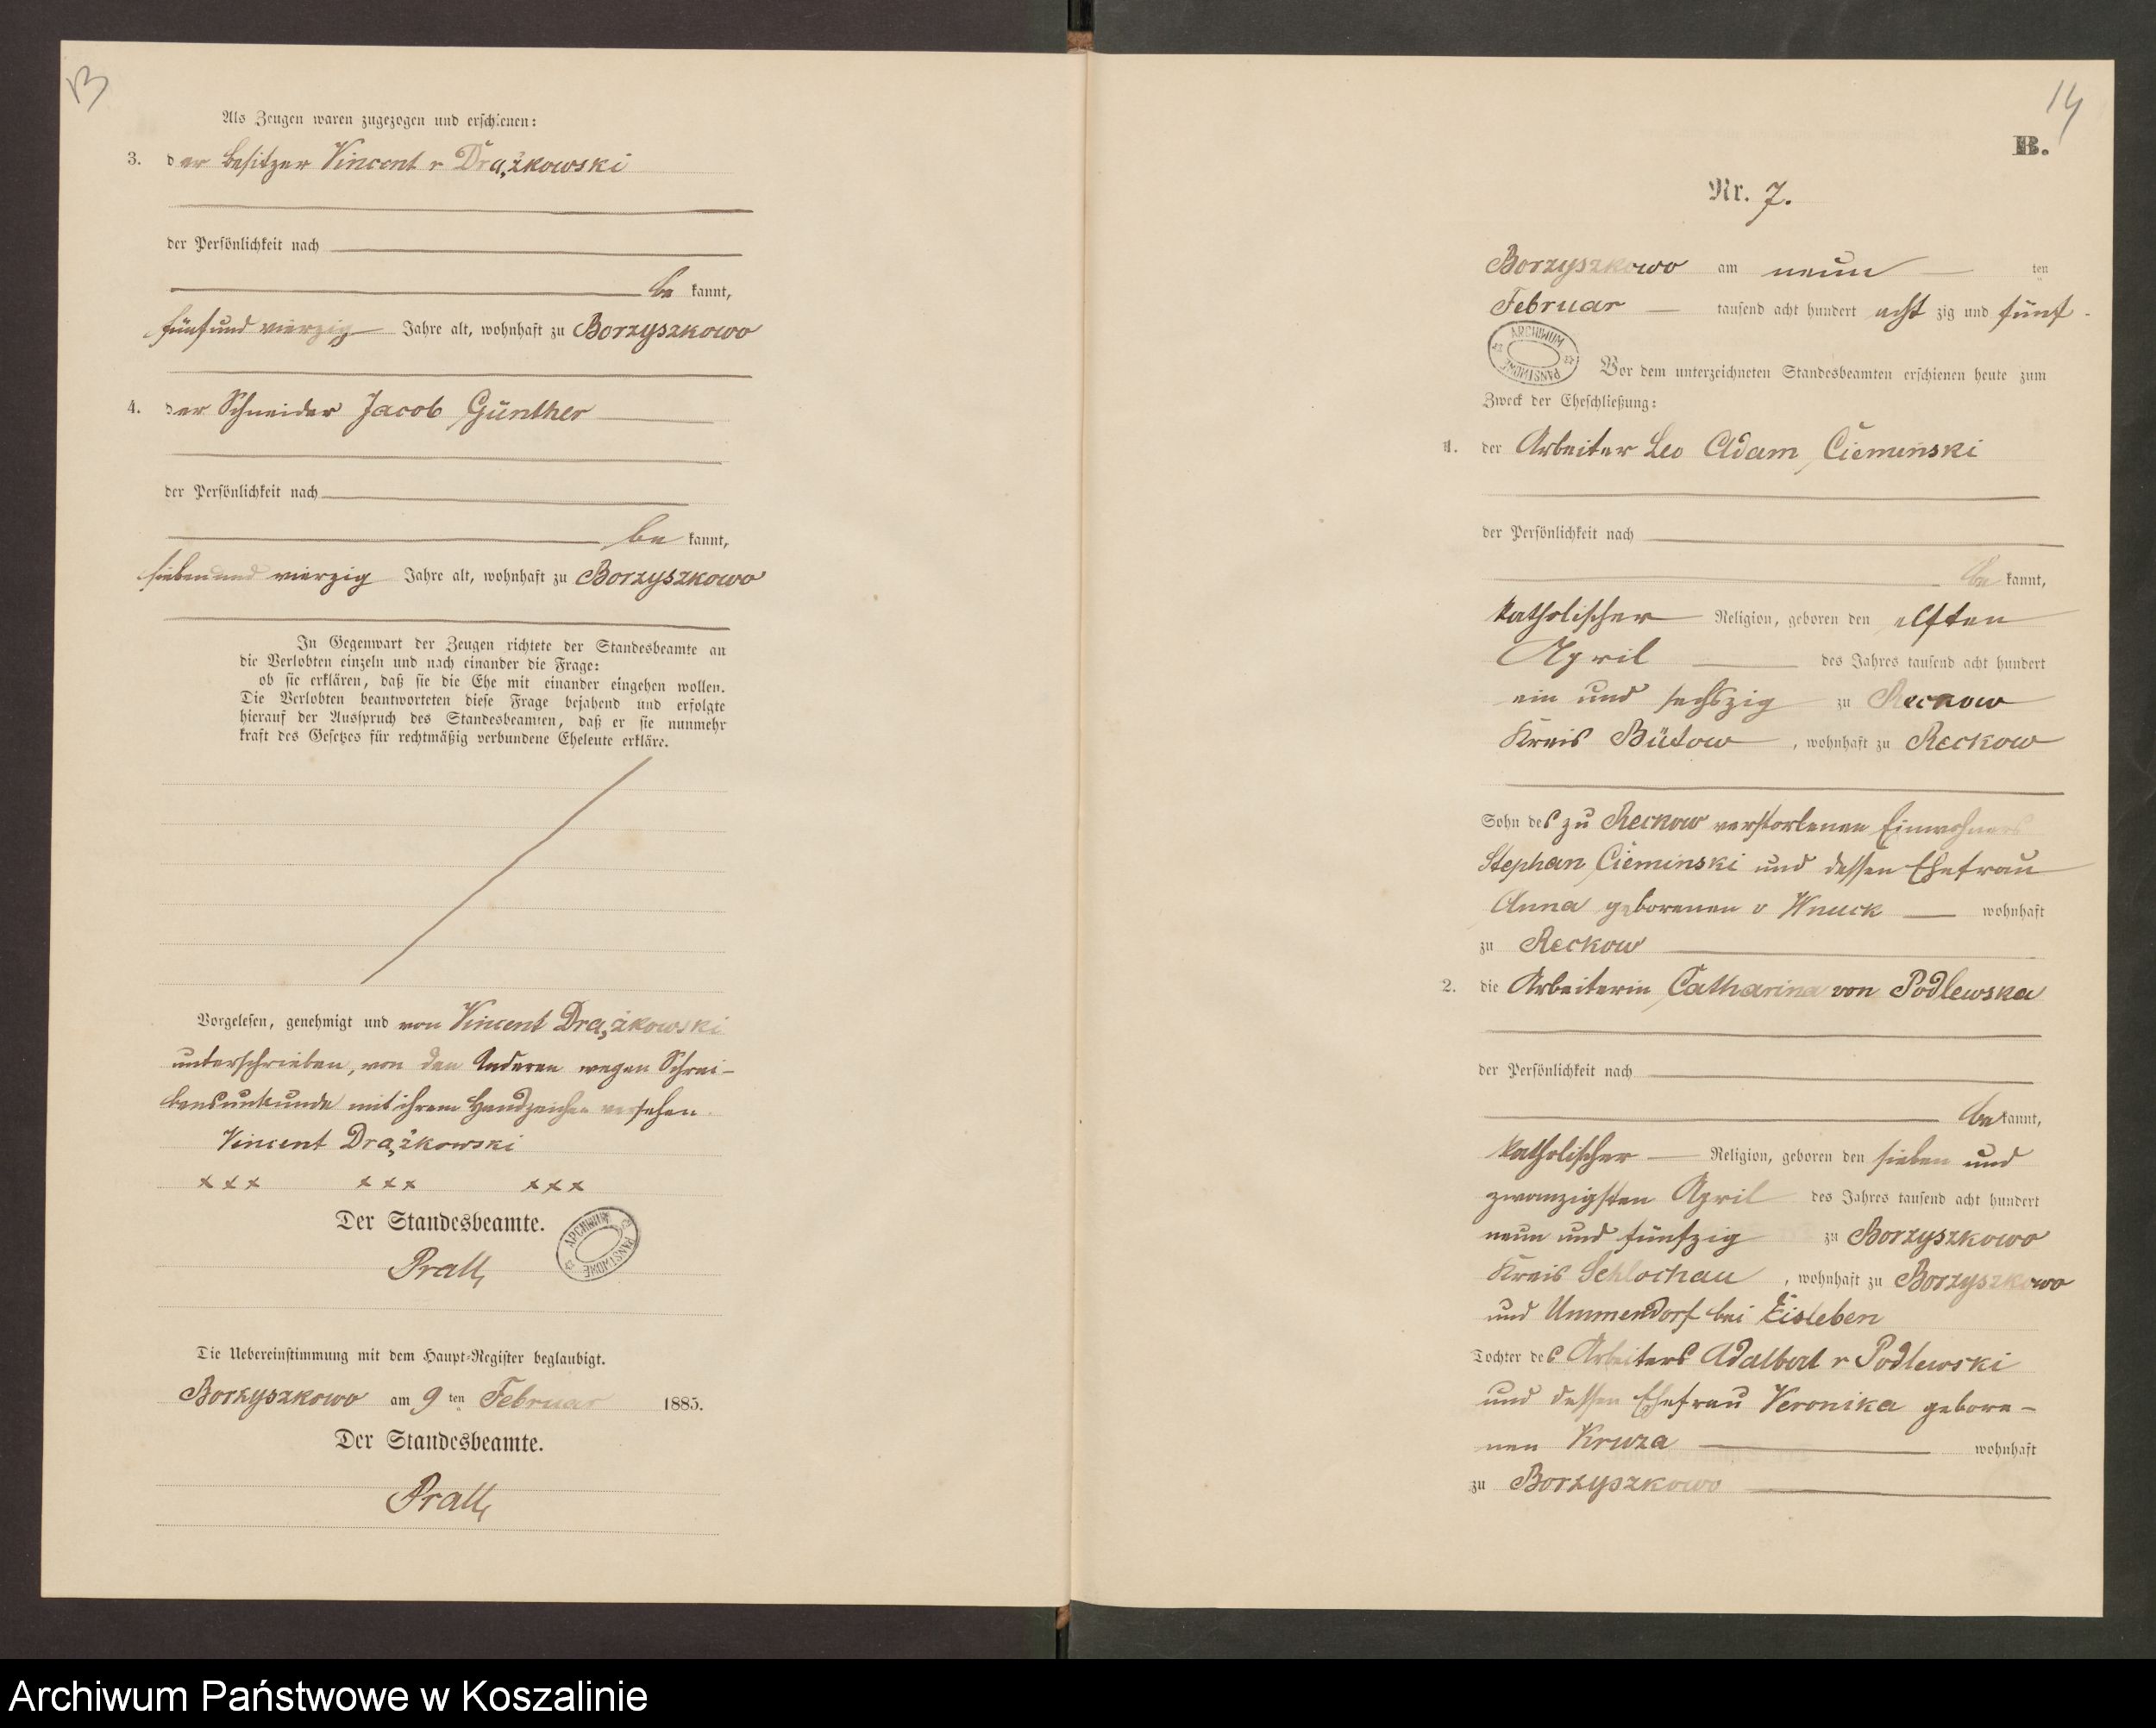 13
Als Zeugen waren zugezogen und erschienen:
3. der Besitzer Vincent v Drążkowski
der Persönlichkeit nach
be kannt,
fünf und vierzig Jahre alt, wohnhaft zu Borzyszkowo
4. der Schneider Jacob Günther
der Persönlichkeit nach
be kannt,
sieben und vierzig Jahre alt, wohnhaft zu Borzyszkowo
In Gegenwart der Zeugen richtete der Standesbeamte an
die Verlobten einzeln und nach einander die Frage:
ob sie erklären, daß sie die Ehe mit einander eingehen wollen.
Die Verlobten beantworteten diese Frage bejahend und erfolgte
hierauf der Ausspruch des Standesbeamten, daß er sie nunmehr
kraft des Gesetzes für rechtmäßig verbundene Eheleute erkläre.
Vorgelesen, genehmigt und von Vincent Drążkowski
unterschrieben, von den Anderen wegen Schrei-
bensunkunde mit ihrem Handzeichen versehen.
Vincent Drążkowski
xxx xxx xxx
Der Standesbeamte.
ARCHIWUM PAŃSTWOWE
Die Uebereinstimmung mit dem Haupt-Register beglaubigt.
Borzyszkowo am 9 ten Februar 1885.
Der Standesbeamte.
14
B.
Nr. 7.
Borzyszkowo am neun ten
Februar tausend acht hundert acht zig und fünf
ARCHIWUM PAŃSTWOWE
Vor dem unterzeichneten Standesbeamten erschienen heute zum
Zweck der Eheschließung:
1. der Arbeiter Leo Adam Cieminski
der Persönlichkeit nach
be kannt,
katholischer Religion, geboren den elften
April des Jahres tausend acht hundert
ein und sechszig zu Reckow
Kreis Bütow, wohnhaft zu Reckow
Sohn des zu Reckow verstorbenen Einwohners
Stephan Cieminski und dessen Ehefrau
Anna geborenen v Wnuck wohnhaft
zu Reckow
2. die Arbeiterin Catharina von Podlewska
der Persönlichkeit nach
be kannt,
katholischer Religion, geboren den sieben und
zwanzigsten April des Jahres tausend acht hundert
neun und fünfzig zu Borzyszkowo
Kreis Schlochau, wohnhaft zu Borzyszkowo
und Ummendorf bei Eisleben
Tochter des Arbeiters Adalbert v Podlewski
und dessen Ehefrau Veronika gebore-
nen Kruza wohnhaft
zu Borzyszkowo
Archiwum Państwowe w Koszalinie